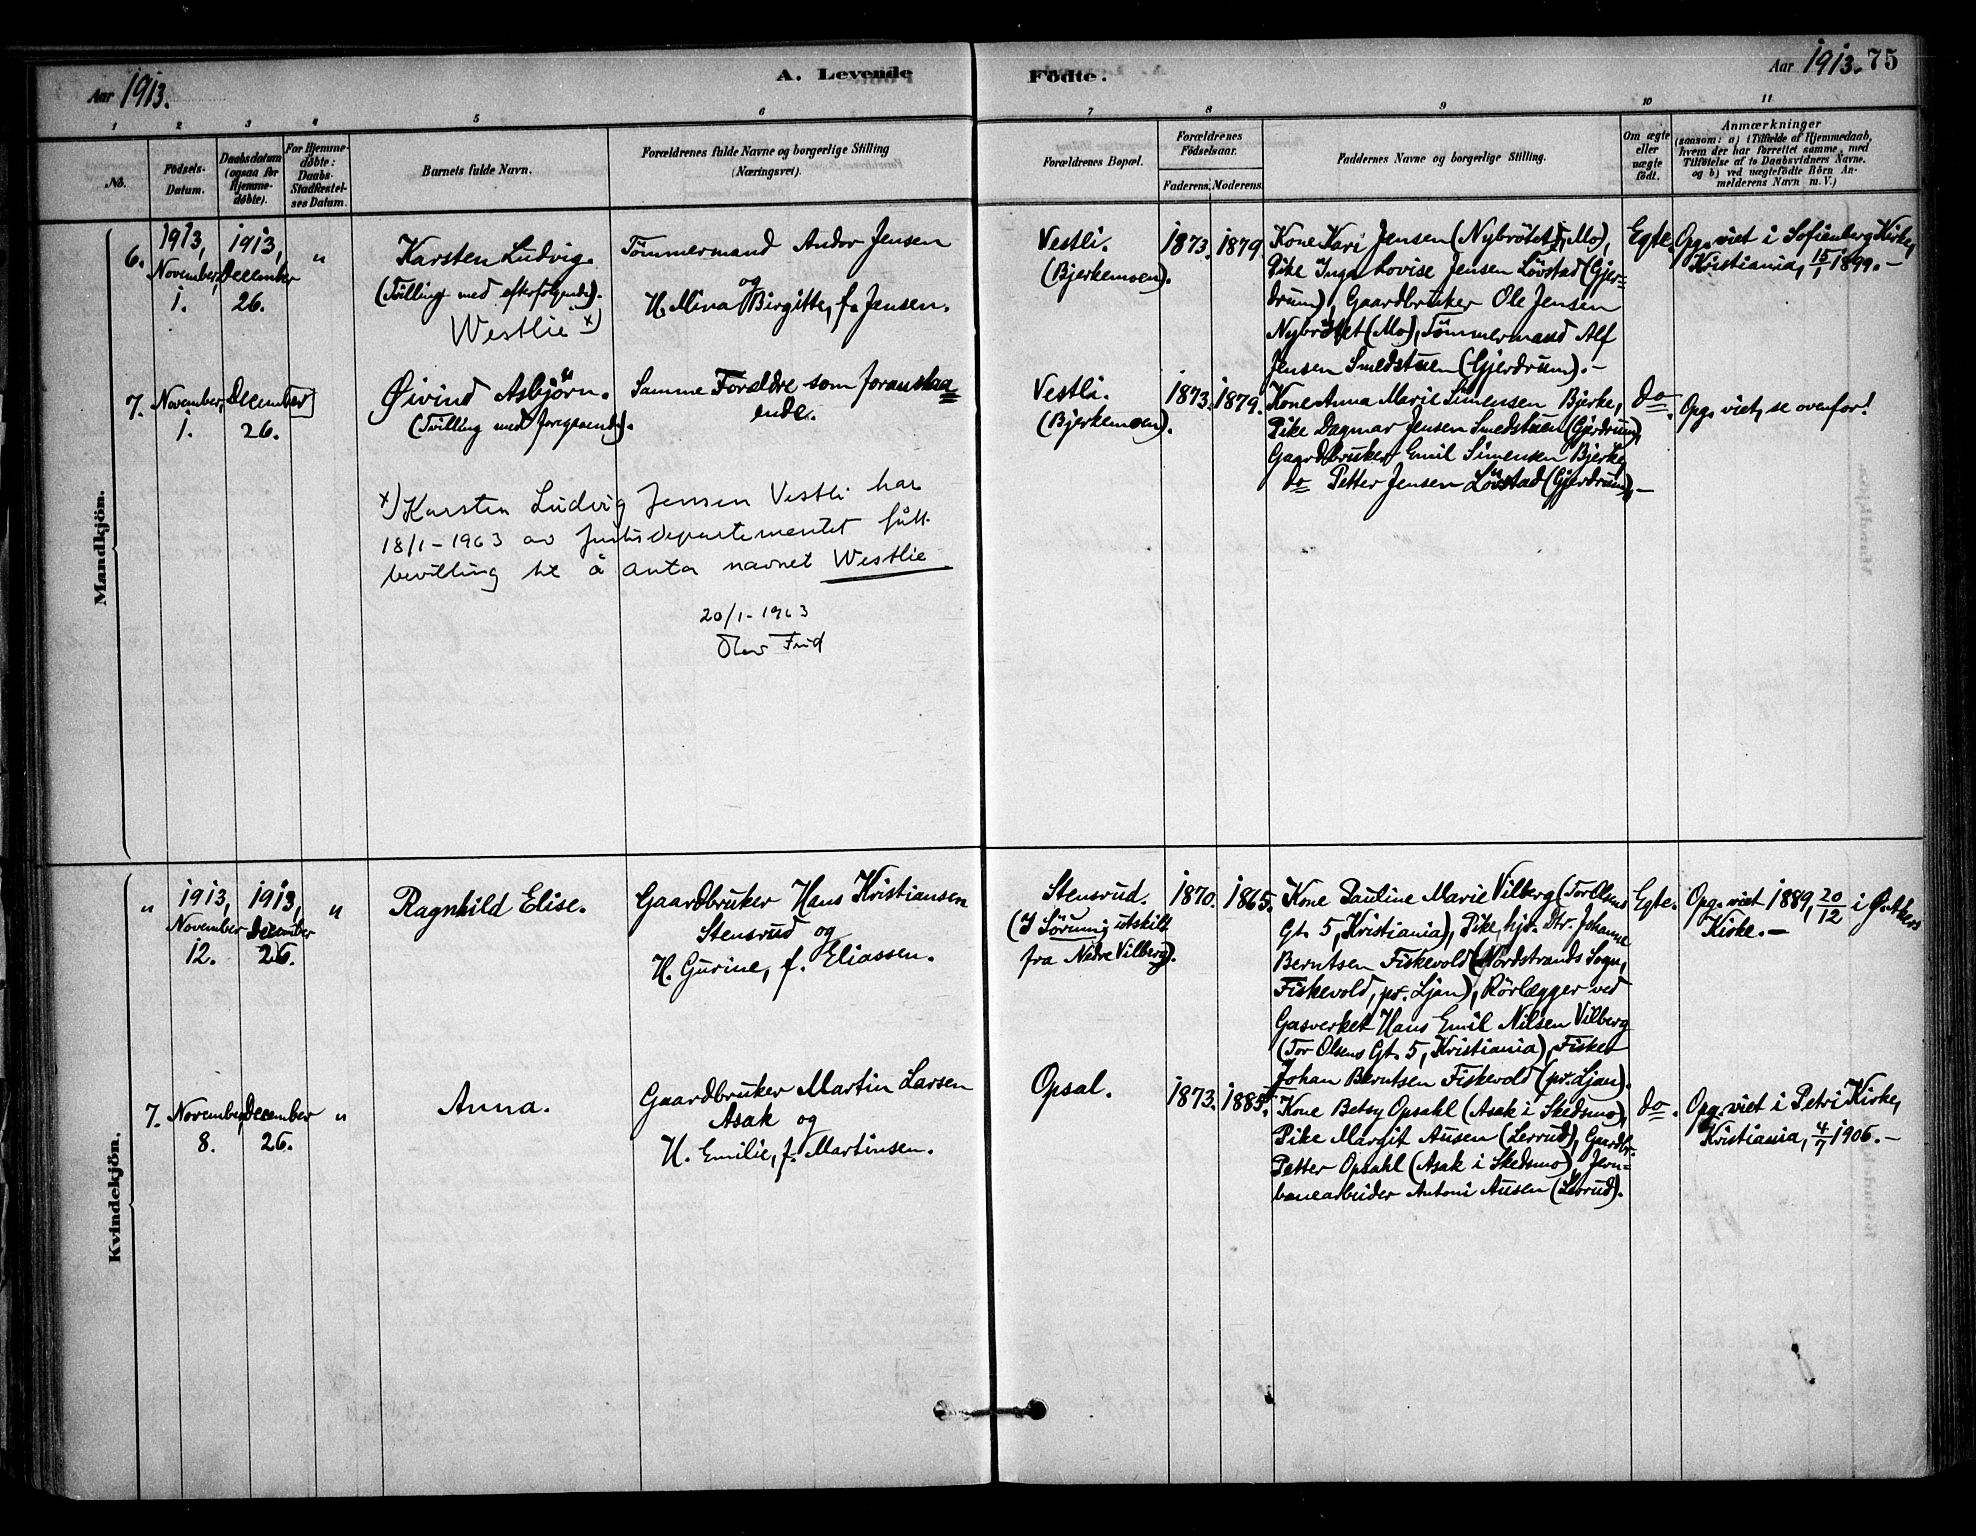 Aar 1913.
A. Levende
Födte.
Aar 1913. 75
1 2 3 4 5 6 7 8 9 10 11
No.
Födsels-
Datum.
Daabsdatum
(ogsaa for
Hjemme-
døbte).
For Hjemme-
døbte:
Daabs-
Stadfæstel-
ses Datum.
Barnets fulde Navn.
Forældrenes fulde Navne og borgerlige Stilling
(Næringsvei).
Forældrenes Bopæl.
Forældrenes
Födselsaar.
Faderens. Moderens.
Faddernes Navne og borgerlige Stilling.
Om ægte
eller
uægte
født.
Anmærkninger
(saasom: a) i Tilfælde af Hjemmedaab,
hvem der har forrettet samme, med
Tilföielse af to Daabsvidners Navne.
og b) ved uægtefödte Börn An-
melderens Navn m. V.)
Mandkjön.
6.
1913,
November,
1.
1913,
December
26.
"
Karsten Ludvig.
(Tvilling med efterfølgende).
Westlie x)
Tömmermand Andor Jensen
og
H. Mina Birgitte, f. Jensen.
Vestli.
(Bjerkemoen).
1873. 1879.
Kone Kari Jensen (Nybrötet i Mo),
Pike Inga Lovise Jensen Lövstad (Gjer-
drum), Gaardbruker Ole Jensen
Nybrötet (Mo), Tömmermand Alf
Jensen Smedstuen (Gjerdrum).-
Egte.
Opg. viet i Sofienberg Kirke,
Kristiania, 15/1 1899.-
7.
November,
1.
December
26.
"
Øivind Asbjörn.
(Tvilling med foregaaende).
Samme Forældre som foranstaa=
ende.
Vestli.
(Bjerkemoen).
1873. 1879.
Kone Anna Marie Simensen Bjerke,
Pike Dagmar Jensen Smedstuen (Gjerdrum),
Gaardbruker Emil Simensen Bjerke,
do Petter Jensen Lövstad (Gjerdrum).-
do.
Opg. viet, se ovenfor!
x) Karsten Ludvig Jensen Vestli har
18/1-1963 av Justisdepartementet fått
bevilling til å anta navnet Westlie
20/1-1963
Kvindekjön.
"
1913,
November
12.
1913,
December
26.
"
Ragnhild Elise.
Gaardbruker Hans Kristiansen
Stensrud og
H. Gurine, f. Eliassen.
Stensrud.
(I Sörum; utskilt
fra Nedre Vilberg).
1870. 1865.
Kone Pauline Marie Vilberg (Tor Olsens
Gt. 5, Kristiania), Pike, hjv. Dtr. Johanne
Berntsen Fiskevold (Nordstrands Sogn,
Fiskevold, pr. Ljan), Rörlægger ved
Gasverket Hans Emil Nilsen Vilberg
(Tor Olsens Gt. 5, Kristiania), Fisker
Johan Berntsen Fiskevold (pr. Ljan).
Egte.
Opg. viet 1889, 20/12 i Ø. Akers
Kirke.-
7.
November,
8.
December
26.
"
Anna.
Gaardbruker Martin Larsen
Asak og
H. Emilie, f. Martinsen.
Opsal.
1873. 1885.
Kone Betsy Opsahl (Asak i Skedsmo),
Pike Margit Ausen (Lerrud), Gaardbr.
Petter Opsahl (Asak i Skedsmo), Jern=
banearbeider Antoni Ausen (Lerrud).
do.
Opg. viet i Petri Kirke,
Kristiania, 4/7 1906.-